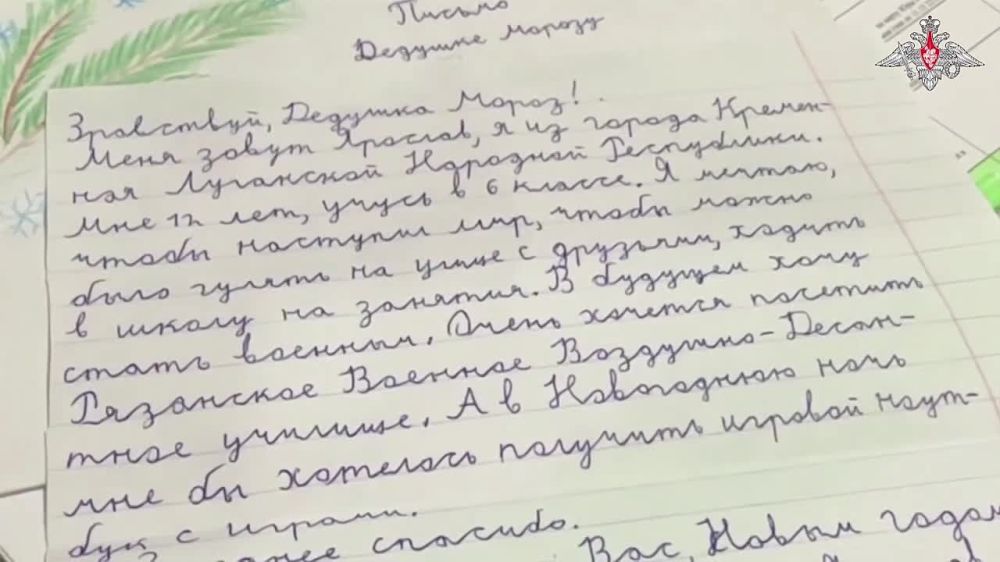 Письмо
Дедушке Морозу
Здравствуй, Дедушка Мороз!
Меня зовут Ярослав, я из города Кремен-
ная Луганской Народной Республики.
Мне 12 лет, учусь в 6 классе. Я мечтаю,
чтобы наступил мир, чтобы можно
было гулять на улице с друзьями, ходить
в школу на занятия. В будущем хочу
стать военным. Очень хочется посетить
Рязанское Военное Воздушно-Десан-
тное училище. А в Новогоднюю ночь
мне бы хотелось получить игровой ноут-
бук с играми.
спасибо.
Вас, Новым годом